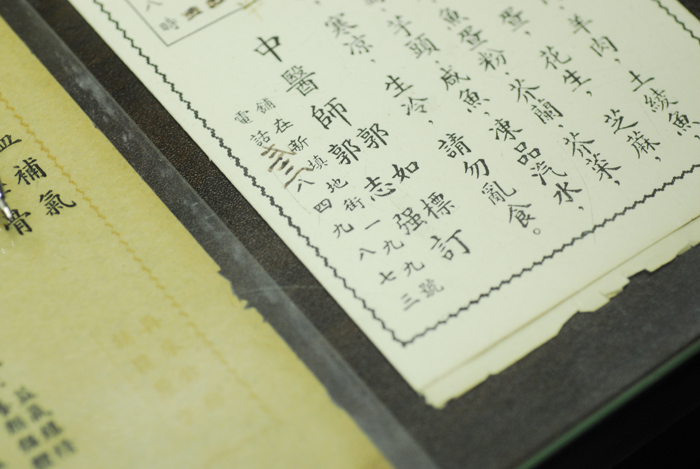 羊肉，土綾魚
蛋，花生，芝蔴，
魚蛋粉，芥蘭，芥菜，
芋頭，咸魚，凍品汽水，
寒涼，生冷，請勿亂食。
中醫師郭如標郭志强訂
舖在新填地街一九九號
電話三八四九八七三
八時
補氣
骨